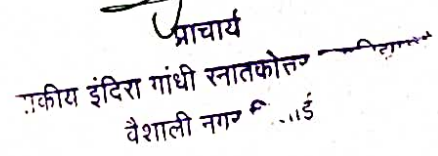 प्राचार्य
इंदिरा गांधी स्नातकोत्तर
वैशाली नगर